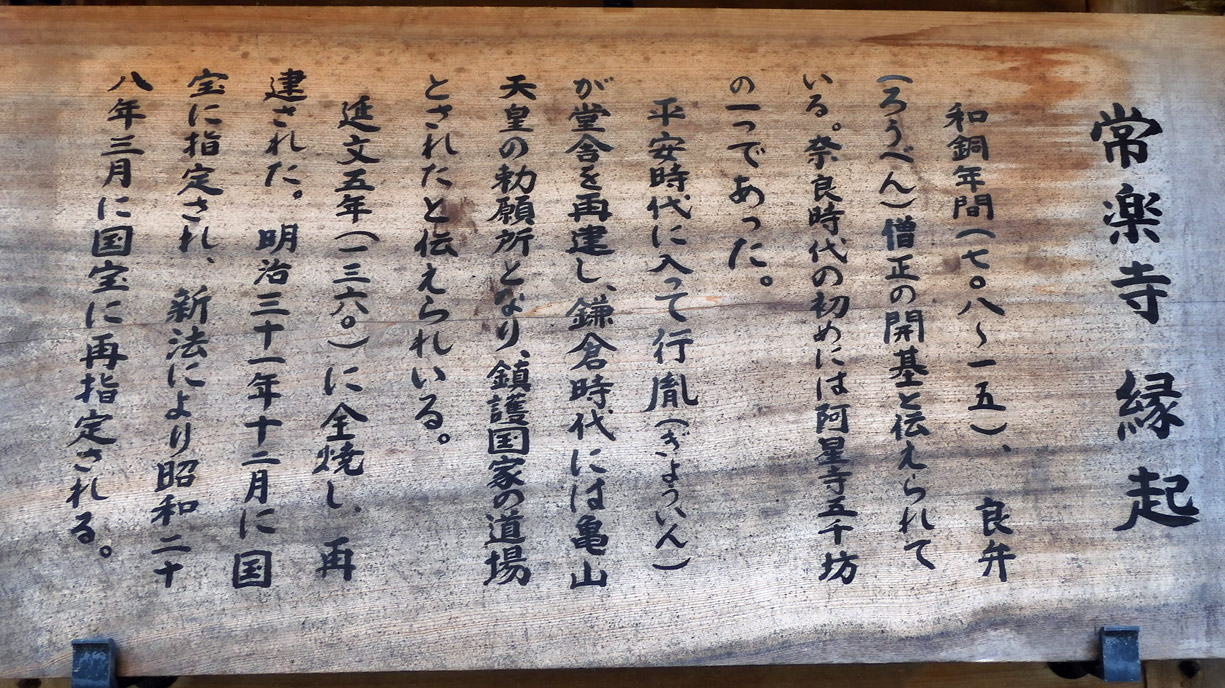 常楽寺 縁起
和銅年間(七〇八～一五)、良弁
(ろうべん)僧正の開基と伝えられて
いる。奈良時代の初めには阿星寺五千坊
の一つであった。
平安時代に入って行胤(ぎょういん)
が堂舎を再建し、鎌倉時代には亀山
天皇の勅願所となり、鎮護国家の道場
とされたと伝えられいる。
延文五年(一三六〇)に全焼し、再
建された。明治三十一年十二月に国
宝に指定され、新法により昭和二十
八年三月に国宝に再指定される。